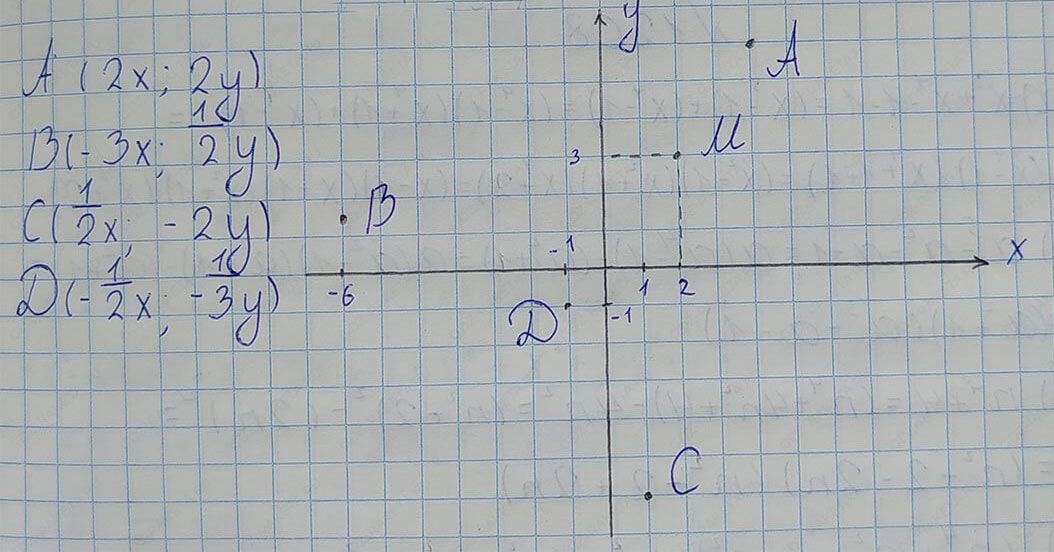 A (2x; 2y)
B(-3x; 1/2 y)
C(1/2 x; -2y)
D(-1/2 x; -1/3 y)
y
A
3
M
B
-1
x
-6
1
2
D
-1
C